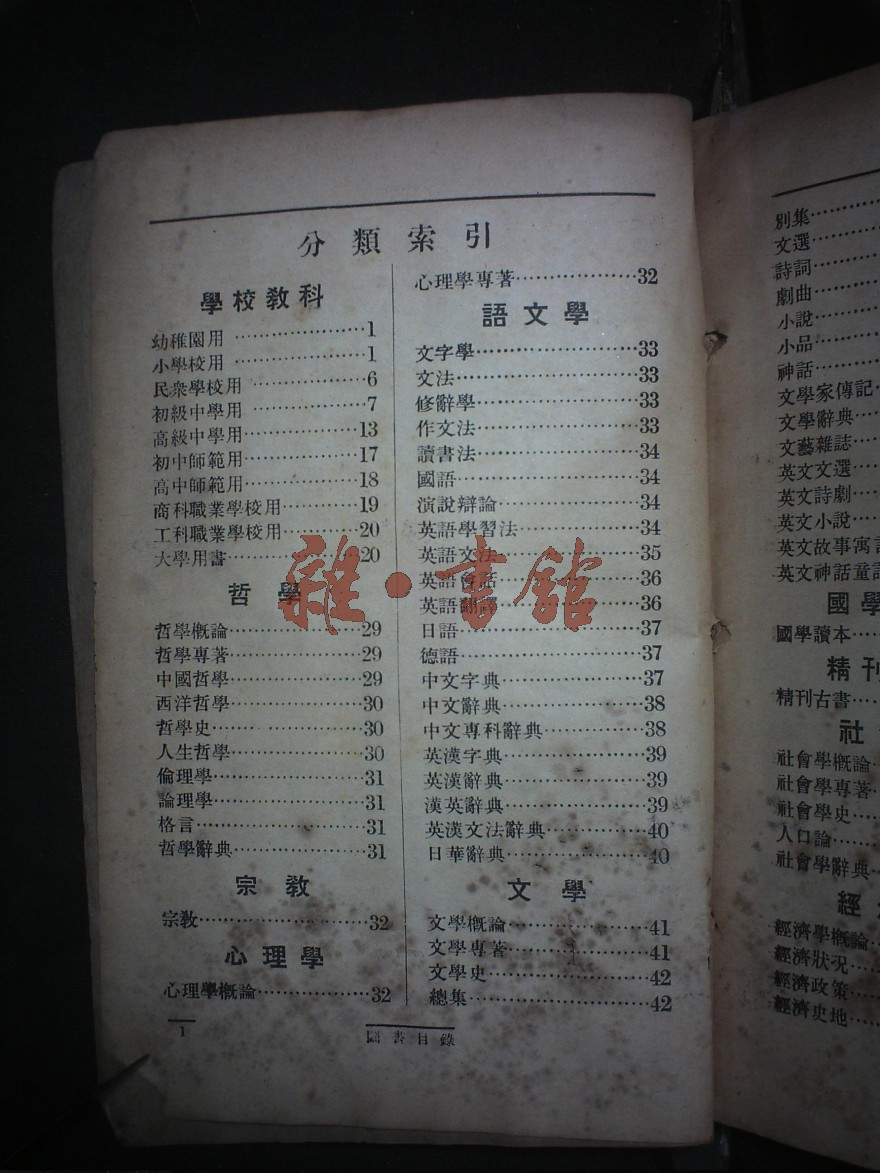 分類索引
學校教科
幼稚園用 ⋯⋯⋯⋯⋯⋯1
小學校用 ⋯⋯⋯⋯⋯⋯1
民衆學校用 ⋯⋯⋯⋯⋯6
初級中學用 ⋯⋯⋯⋯⋯7
高級中學用⋯⋯⋯⋯⋯13
初中師範用⋯⋯⋯⋯⋯17
高中師範用⋯⋯⋯⋯⋯18
商科職業學校用⋯⋯⋯19
工科職業學校用⋯⋯⋯20
大學用書⋯⋯⋯⋯⋯⋯20
哲學
哲學概論⋯⋯⋯⋯⋯⋯29
哲學專著⋯⋯⋯⋯⋯⋯29
中國哲學⋯⋯⋯⋯⋯⋯29
西洋哲學⋯⋯⋯⋯⋯⋯30
哲學史⋯⋯⋯⋯⋯⋯⋯30
人生哲學⋯⋯⋯⋯⋯⋯30
倫理學⋯⋯⋯⋯⋯⋯⋯31
論理學⋯⋯⋯⋯⋯⋯⋯31
格言⋯⋯⋯⋯⋯⋯⋯⋯31
哲學辭典⋯⋯⋯⋯⋯⋯31
宗教
宗教⋯⋯⋯⋯⋯⋯⋯⋯32
心理學
心理學概論⋯⋯⋯⋯⋯32
心理學專著⋯⋯⋯⋯⋯32
語文學
文字學⋯⋯⋯⋯⋯⋯⋯33
文法⋯⋯⋯⋯⋯⋯⋯⋯33
修辭學⋯⋯⋯⋯⋯⋯⋯33
作文法⋯⋯⋯⋯⋯⋯⋯33
讀書法⋯⋯⋯⋯⋯⋯⋯34
國語⋯⋯⋯⋯⋯⋯⋯⋯34
演說辯論⋯⋯⋯⋯⋯⋯34
英語學習法⋯⋯⋯⋯⋯34
英語文法⋯⋯⋯⋯⋯⋯35
英語會話⋯⋯⋯⋯⋯⋯36
英語翻譯⋯⋯⋯⋯⋯⋯36
日語⋯⋯⋯⋯⋯⋯⋯⋯37
德語⋯⋯⋯⋯⋯⋯⋯⋯37
中文字典⋯⋯⋯⋯⋯⋯37
中文辭典⋯⋯⋯⋯⋯⋯38
中文專科辭典⋯⋯⋯⋯38
英漢字典⋯⋯⋯⋯⋯⋯39
英漢辭典⋯⋯⋯⋯⋯⋯39
漢英辭典⋯⋯⋯⋯⋯⋯39
英漢文法辭典⋯⋯⋯⋯40
日華辭典⋯⋯⋯⋯⋯⋯40
文學
文學概論⋯⋯⋯⋯⋯⋯41
文學專著⋯⋯⋯⋯⋯⋯41
文學史⋯⋯⋯⋯⋯⋯⋯42
總集⋯⋯⋯⋯⋯⋯⋯⋯42
1
圖書目錄
雜·書館
別集⋯⋯
文選⋯⋯
詩詞⋯⋯
劇曲⋯⋯
小說⋯⋯
小品⋯⋯
神話⋯⋯
文學家傳記⋯
文學辭典⋯⋯
文藝雜誌⋯⋯
英文文選⋯⋯
英文詩劇⋯⋯
英文小說⋯⋯
英文故事寓
英文神話童
國學
國學讀本⋯⋯
精刊
精刊古書⋯⋯
社
社會學概論⋯
社會學專著⋯
社會學史⋯⋯
人口論⋯⋯
社會學辭典⋯
經
經濟學概論⋯
經濟狀況⋯⋯
經濟政策⋯⋯
經濟史地⋯⋯